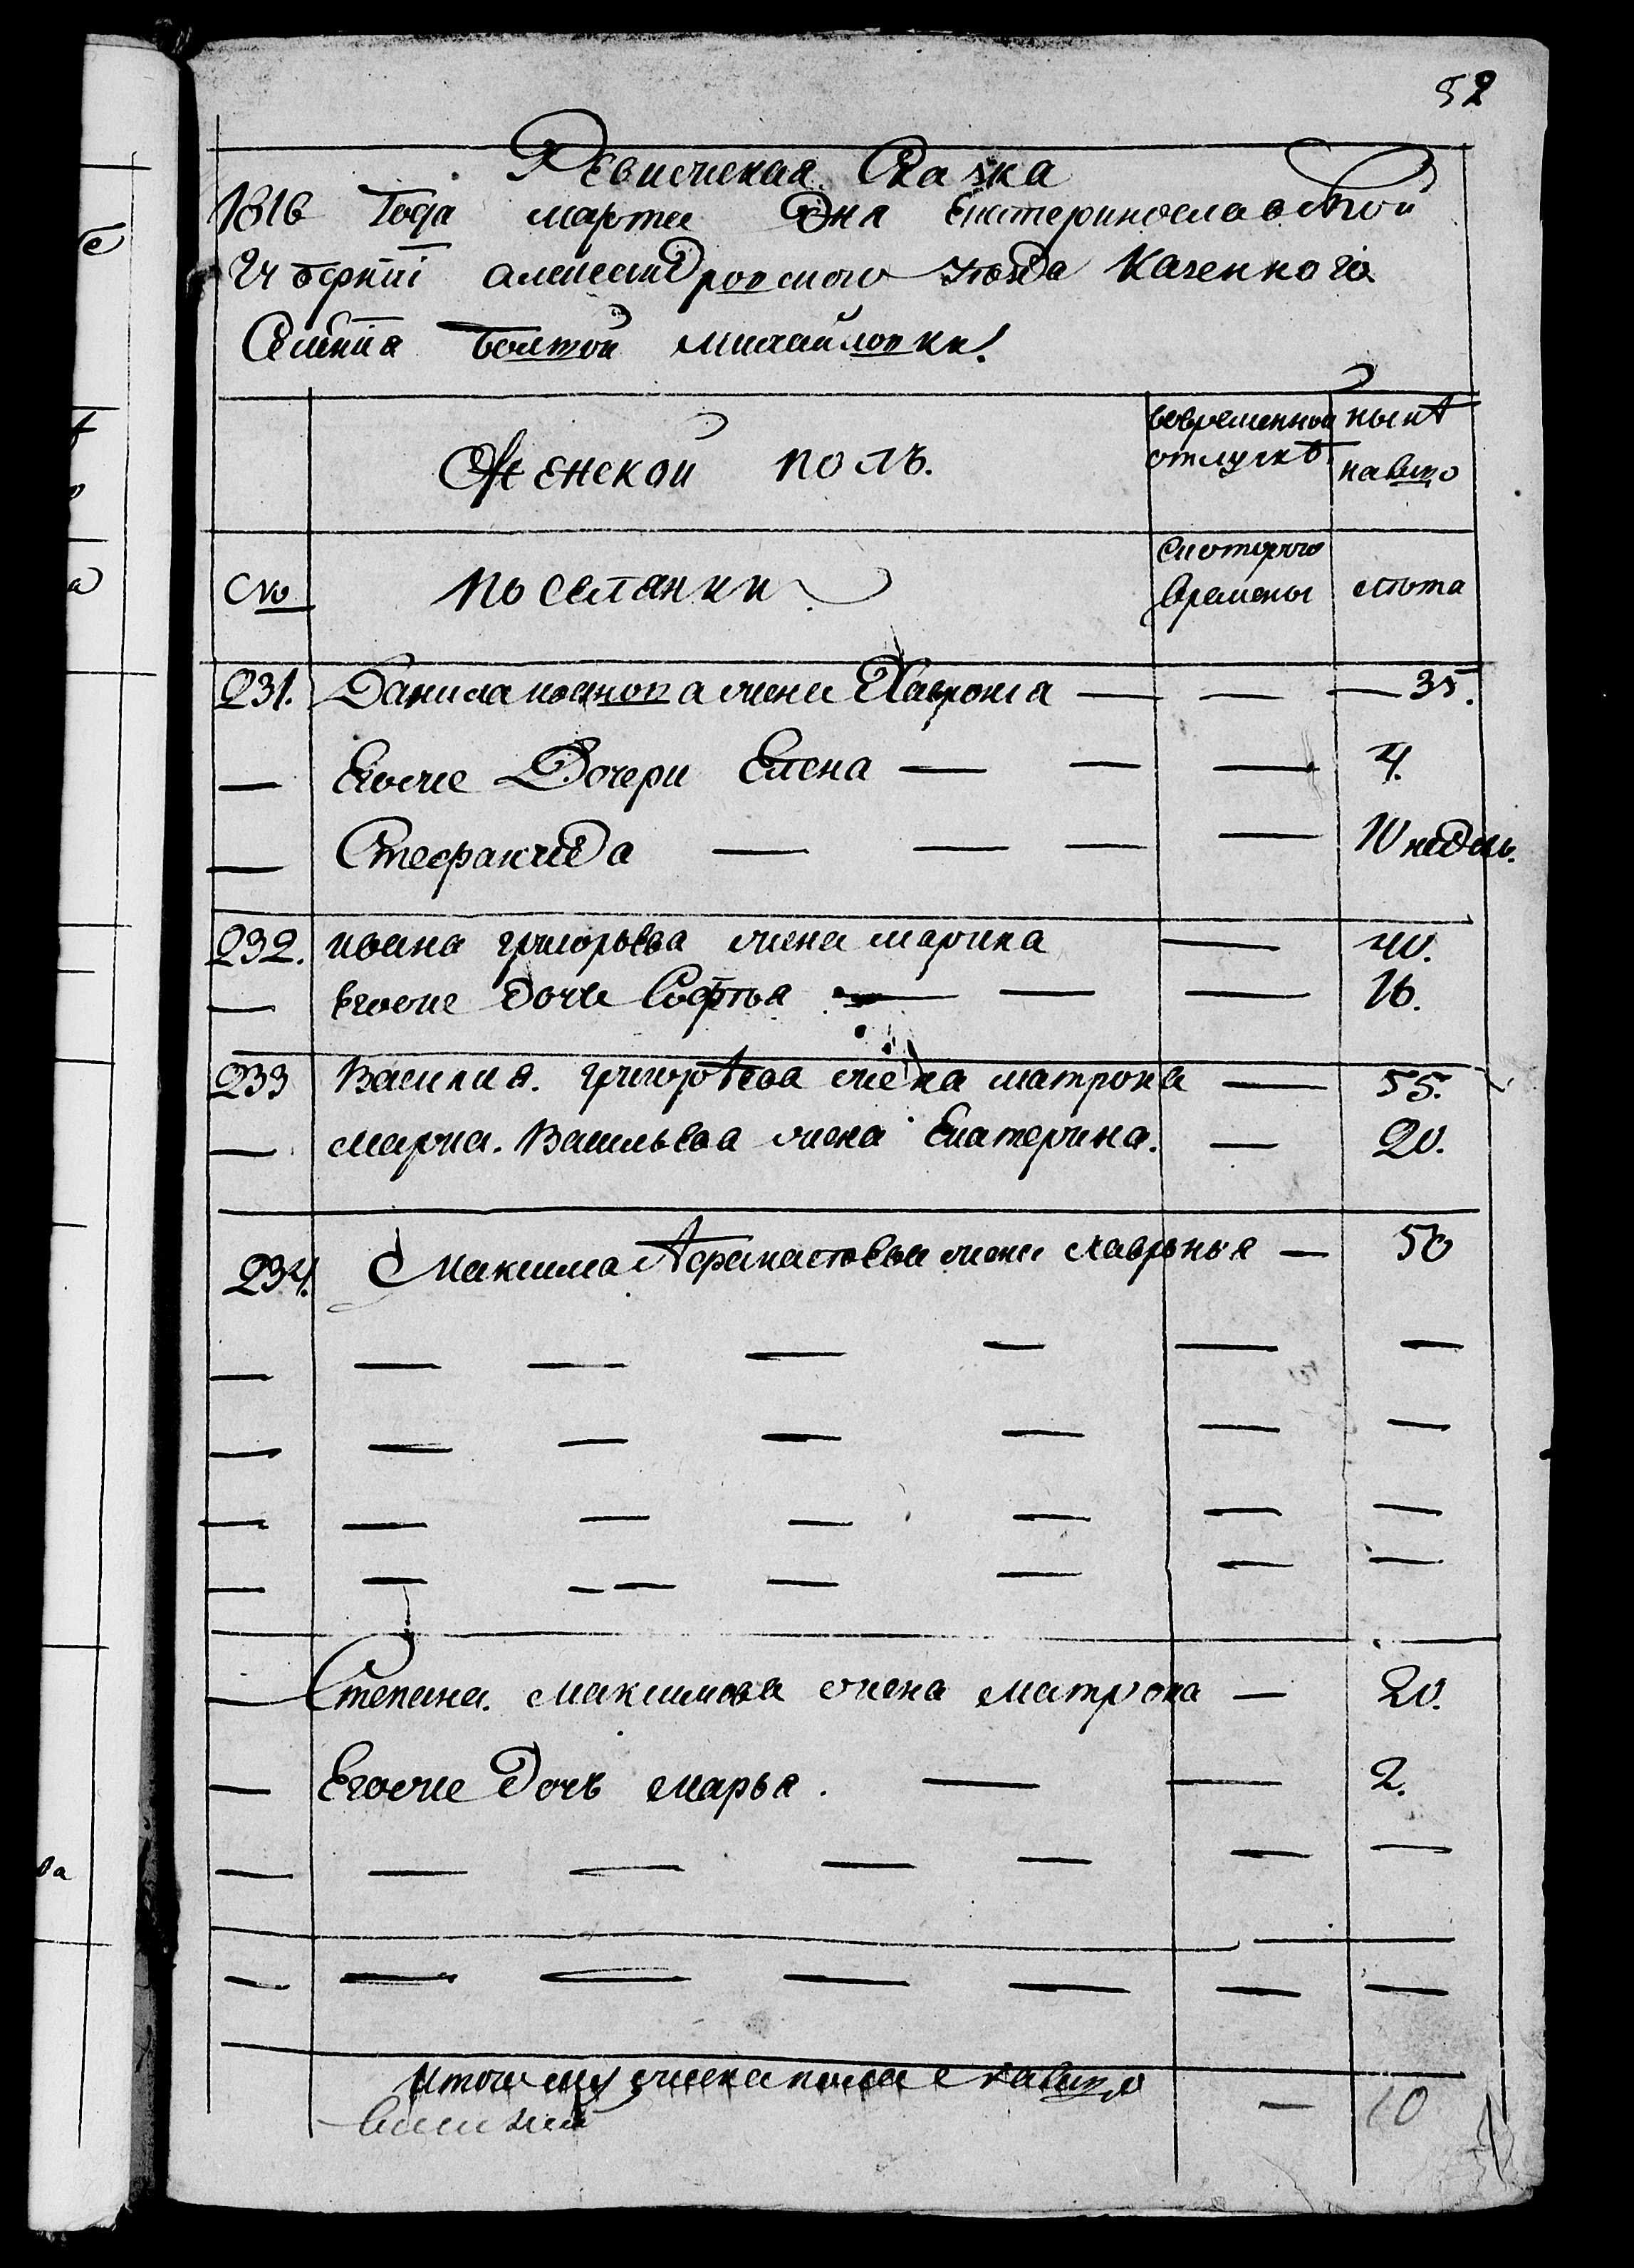 52
Ревижская Сказка
1816 Года марта Дня Екатеринославской
Губернии александровского уезда Казенного
Селения Болтой михайловки.
Женской полъ.
вовременной отлучкѣ
нынѣ налицо
№
поселянки
Скоторого времены
лѣта
231. Данила иванова жена Хаврона — — — 35.
— Егоже Дочери Елена — — — 4.
— Стефанида — — — — 10 недѣль.
232. ивана григорьева жена марина — 40.
— Егоже дочь Софья — — — 16.
233 Василия. григорьева жена матрона — 55.
— марка. Васильева жена Екатерина. — 20.
234. Максима Афанасьева жена хавронья — 50
— — — — — — —
— — — — — — —
— — — — — — —
— — — — — — — —
— Степана. максимова жена матрона — 20.
— Егоже Дочь марья. — — 2.
— — — — — — —
— — — — — — —
Итого женска пола налицо — 10